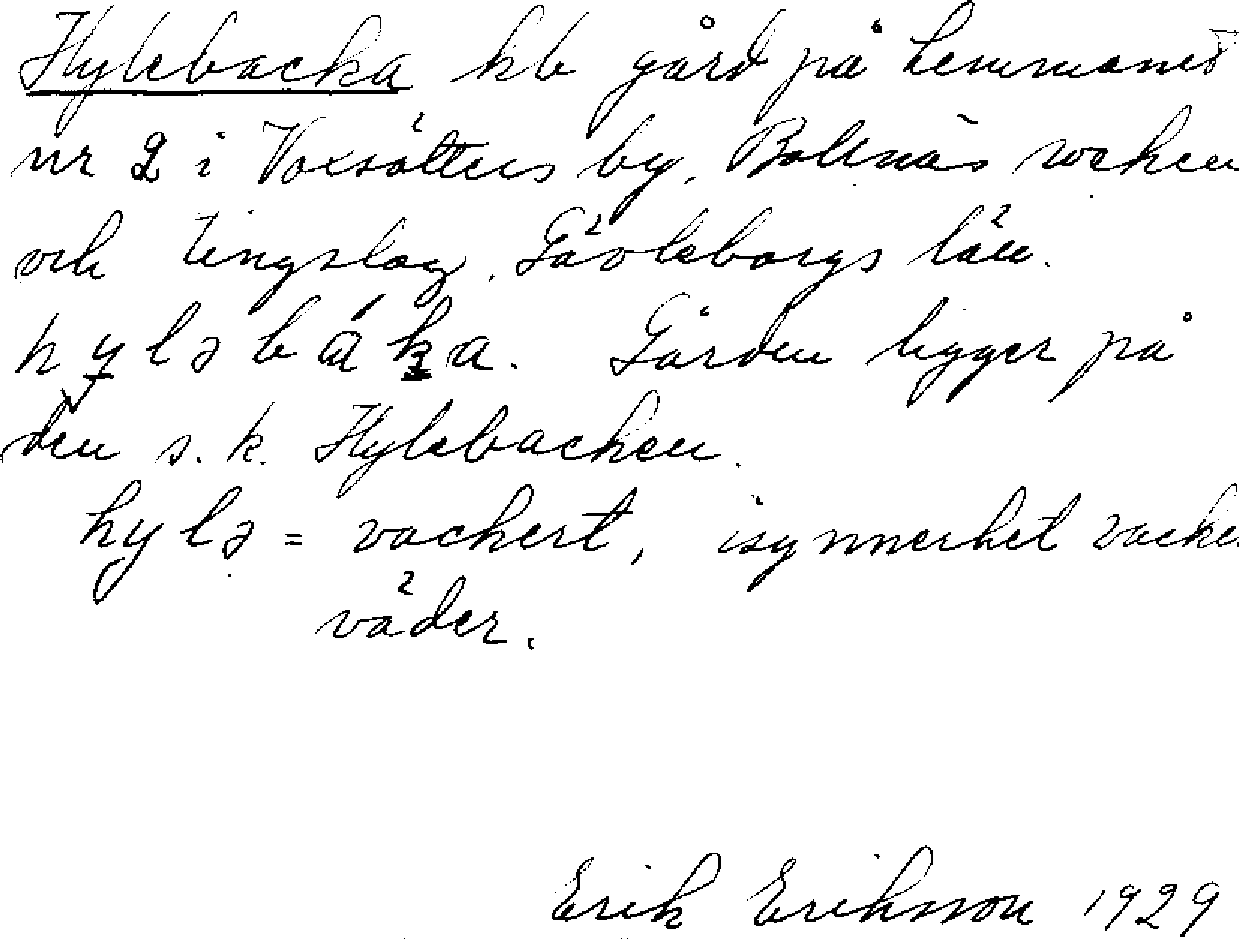 Hylebacka kb gård på hemmanet
nr 2 i Voxsätters by, Bollnäs socken
och tingslag, Gävleborgs län.
hyləbáka. Gården ligger på
den s.k. Hylebacken.
hylə = vackert, isynnerhet vacker
väder.
Erik Eriksson 1929